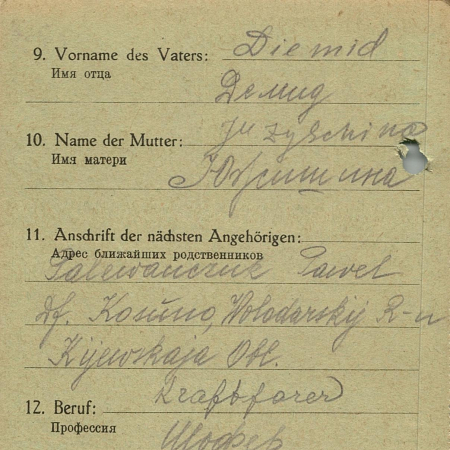 9. Vorname des Vaters: Diemid
Имя отца
Демид
10. Name der Mutter:
Имя матери
11. Anschrift der nächsten Angehörigen:
Адрес ближайших родственников
Pawel
Df. Kosuno, Wolodarskij R-n
Kijewskaja Obl.
12. Beruf: Kraftfarer
Профессия
Шофер